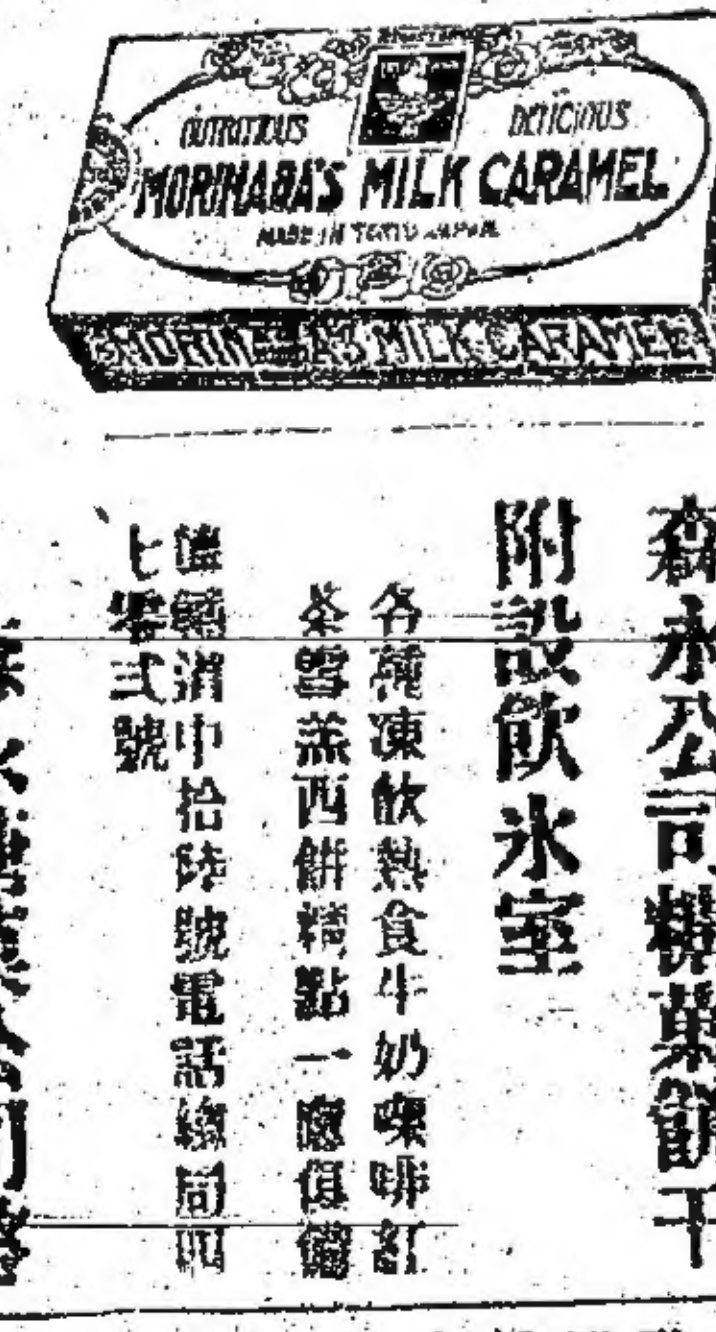 NUTRITIOUS
DELICIOUS
MORINAGA'S MILK CARAMEL
MADE IN TOKYO JAPAN
MILK CARAMEL
森永公司糖菓餅干
附設飲冰室
各種凍飲熱食牛奶㗎啡紅
茶雪羔西餅精點一應俱備
德輔道中拾陸號電話總局四
七零弍號